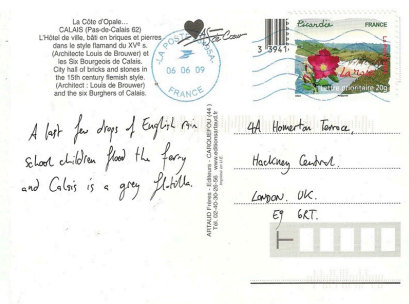 La Côte d'Opale...
CALAIS (Pas-de-Calais 62)
L'Hôtel de ville, bâti en briques et pierres
dans le style flamand du XVe s.
(Architecte Louis de Brouwer) et
les Six Bourgeois de Calais.
City hall of bricks and stones in
the 15th century flemish style.
(Architect : Louis de Brouwer)
and the six Burghers of Calais.
LA POSTE
06 06 09
FRANCE
33941
Picardie
FRANCE
Lettre prioritaire 20g
A last few drops of English rain
School children flood the ferry
and Calais is a grey flotilla.
ARTAUD Frères - Editeurs - CARQUEFOU (44)
Tél. 02-40-30-26-56 - www.editionsartaud.fr
4A Homerton Terrace,
Hackney Central.
LONDON. UK.
E9 6RT.